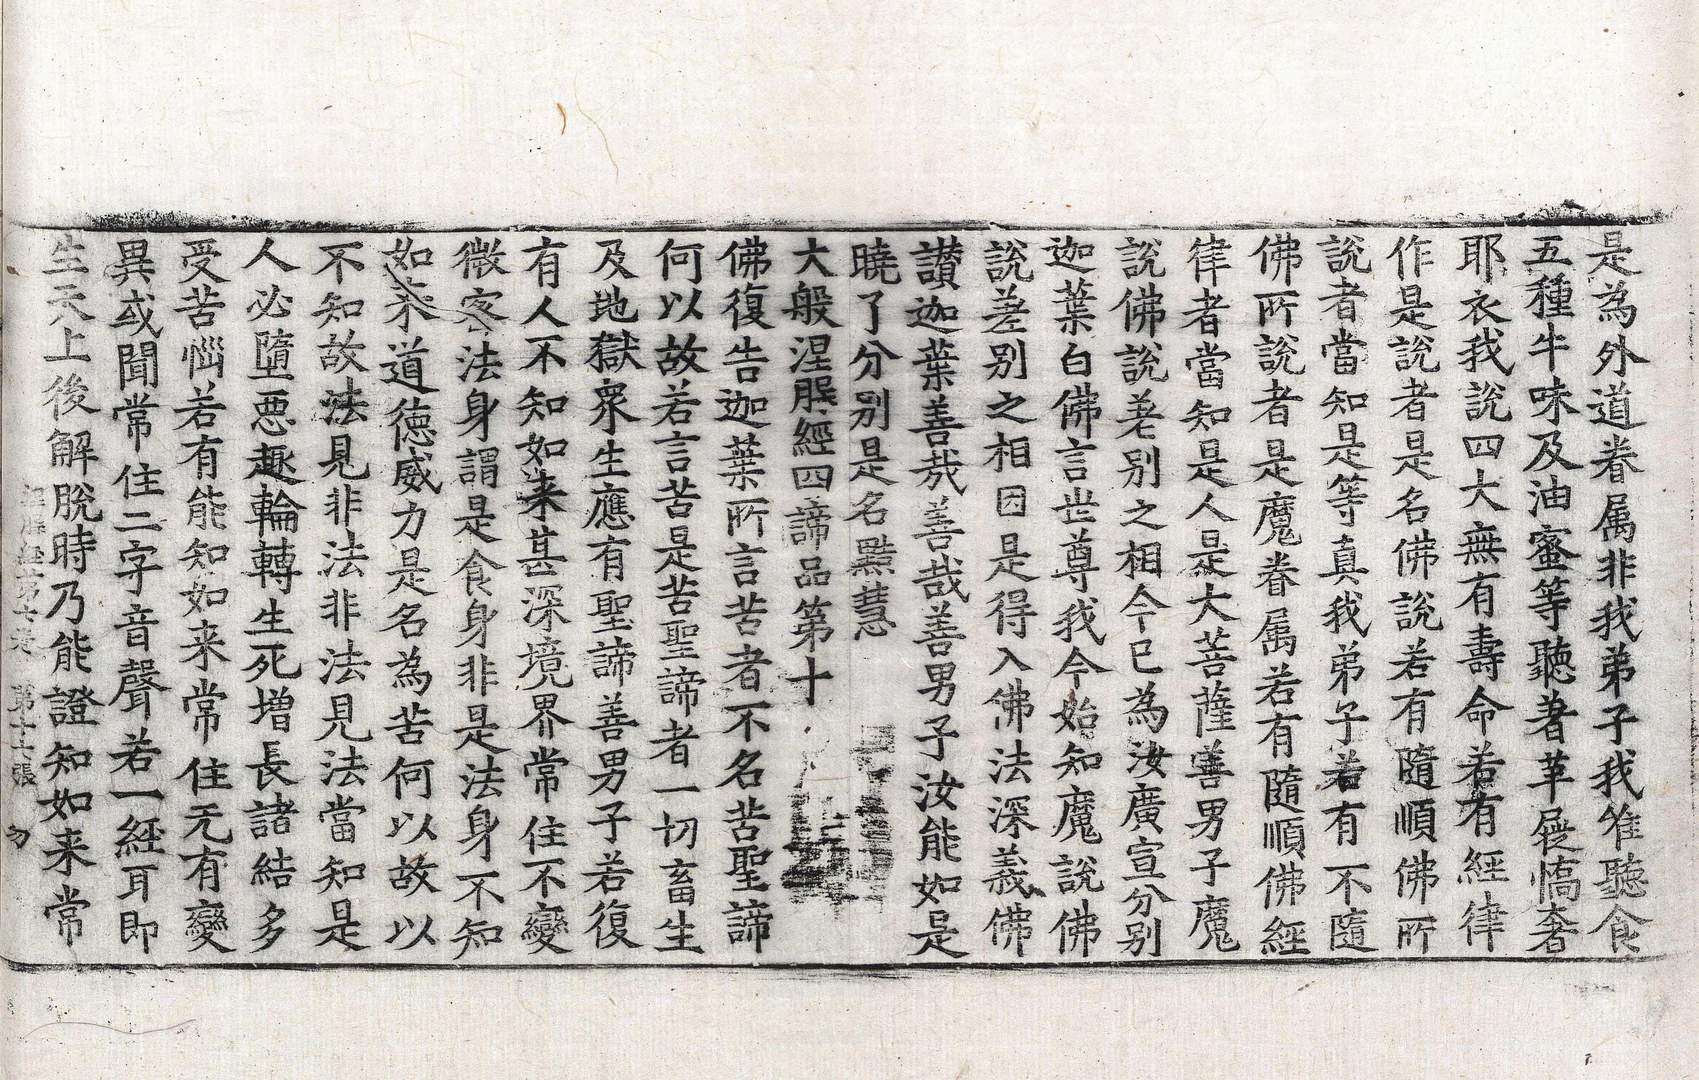 是為外道眷属非我弟子我唯聽食
五種牛味及油蜜等聽著革屣憍奢
耶衣我說四大無有壽命若有經律
作是說者是名佛說若有隨順佛所
說者當知是等真我弟子若有不隨
佛所說者是魔眷属若有隨順佛經
律者當知是人是大菩薩善男子魔
說佛說差別之相今已為汝廣宣分別
迦葉白佛言世尊我今始知魔說佛
說差別之相因是得入佛法深義佛
讃迦葉善哉善哉善男子汝能如是
曉了分別是名黠慧
大般涅槃經四諦品第十
佛復告迦葉所言苦者不名苦聖諦
何以故若言苦是苦聖諦者一切畜生
及地獄衆生應有聖諦善男子若復
有人不知如来甚深境界常住不變
微密法身謂是食身非是法身不知
如来道德威力是名為苦何以故以
不知故法見非法非法見法當知是
人必墮惡趣輪轉生死增長諸結多
受苦惱若有能知如来常住无有變
異或聞常住二字音聲若一經耳即
生天上後解脫時乃能證知如来常